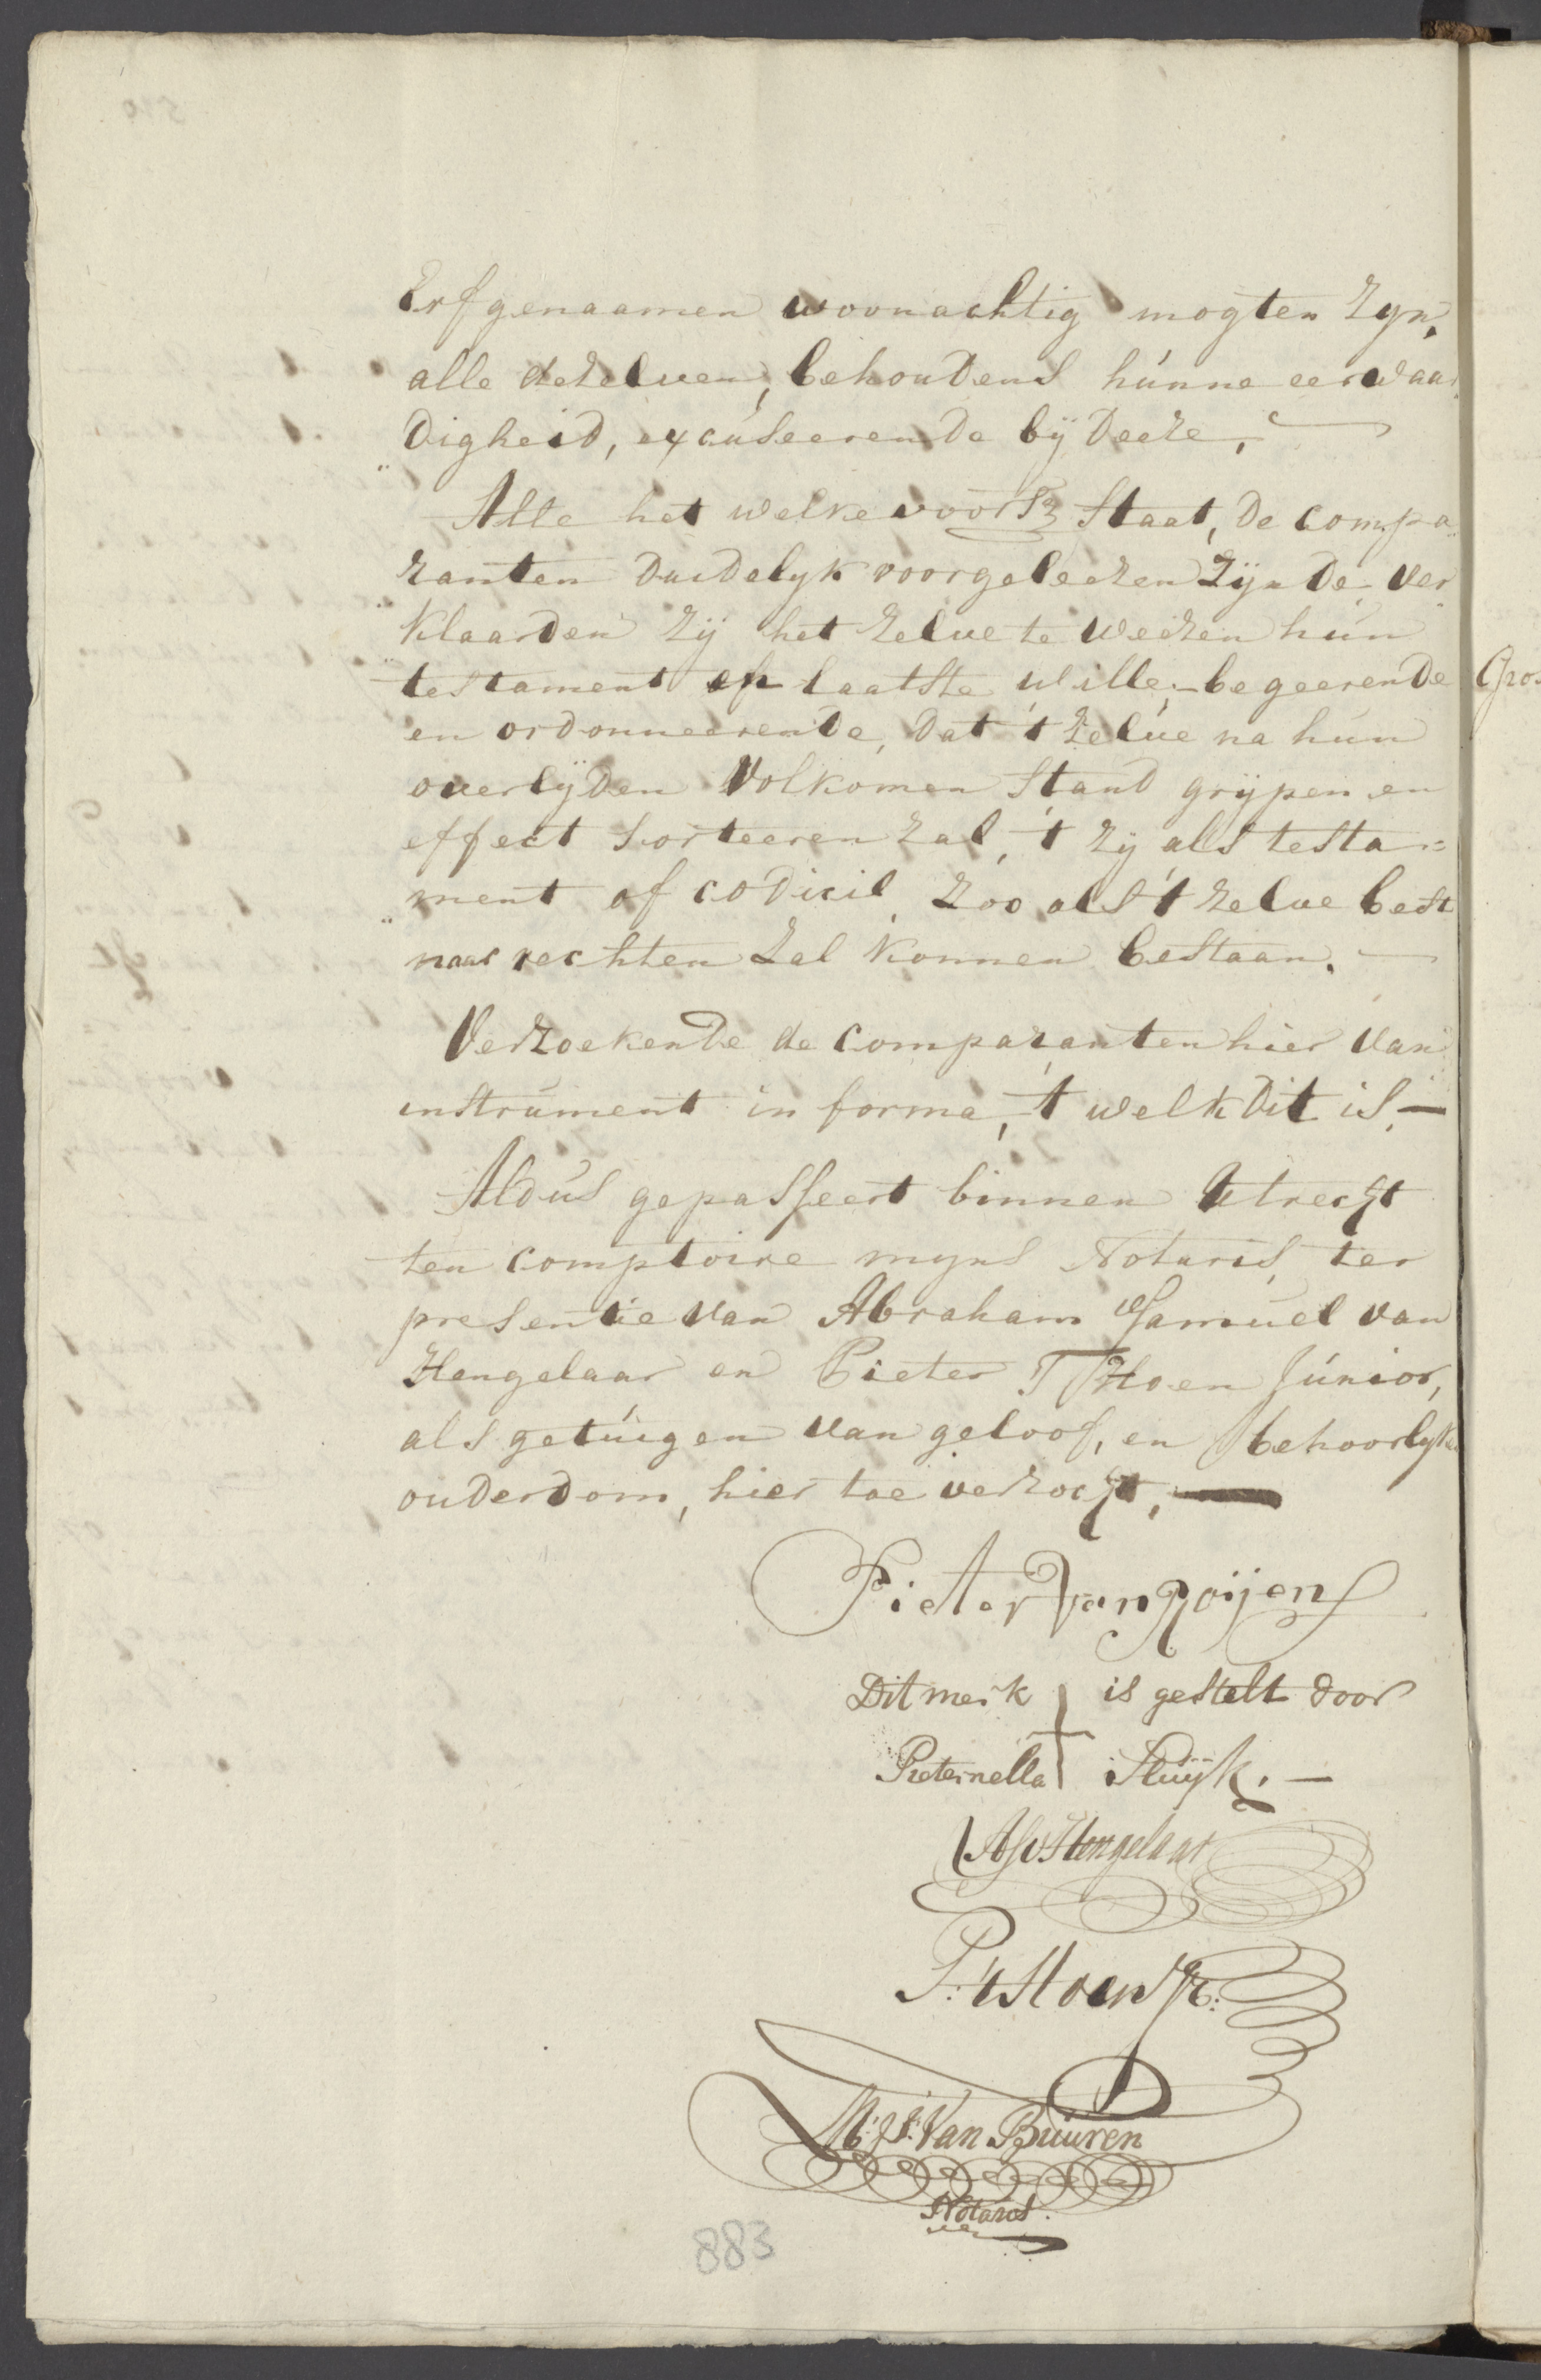 Erfgenaamen woonachtig mogten zyn,
alle dezelven, behoudens hunne eerwaar
digheid, excuseerende bÿ deeze,
Alle het welke voorsz staat, de compa
ranten duidelyk voorgeleezen zÿnde, ver
klaarden zÿ het zelve te weezen hun
testament of laatste wille, begeerende
en ordonneerende, dat 't zelve na hun
overlÿden volkomen stand grÿpen en
effect sorteeren zal, 't zÿ als testa=
ment of codicil, zoo als 't zelve best
naar rechten zal konnen bestaan.
Verzoekende de comparanten hier van
instrument in forma, 't welk dit is,
Aldus gepasseert binnen Utrecht
ten comptoire myns Notaris, ter
presentie van Abraham Samuel van
Hengelaar en Pieter T Hoen Junior,
als getuigen van geloof, en behoorlyke
ouderdom, hier toe verzocht,
Pieter van Roijen
Dit merk is gestelt door
Pieternella Sluÿk.
AS v Hengelaar
P: 't Hoen Jr:
Van Buuren
Notaris
883